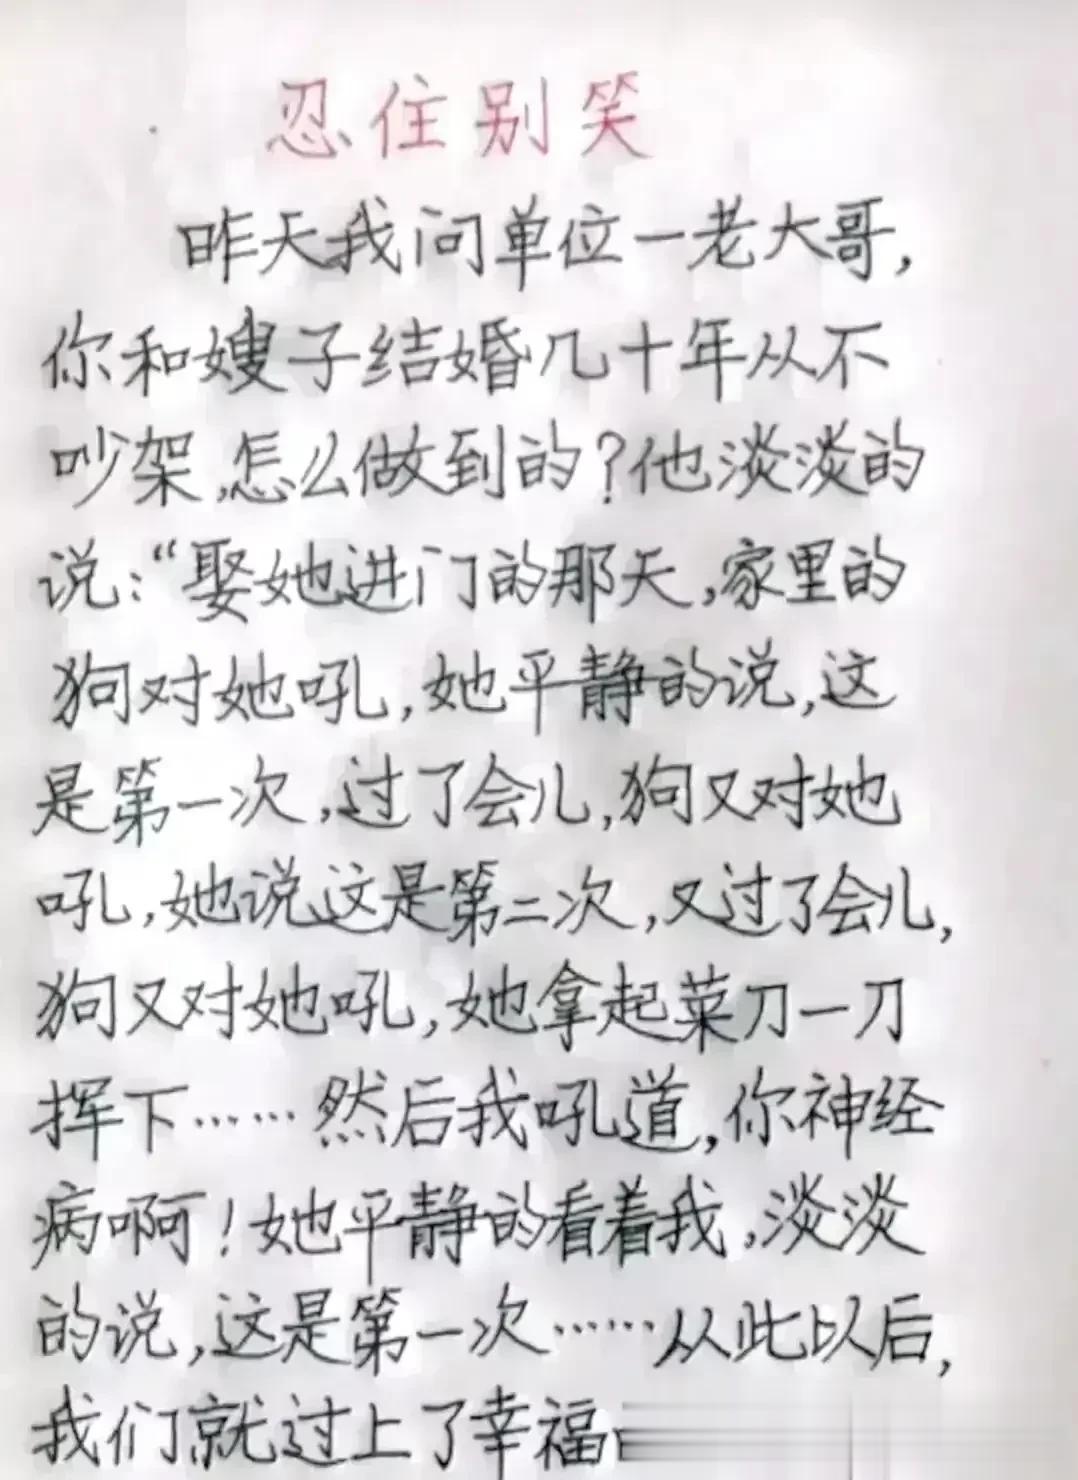 忍住别笑
昨天我问单位一老大哥,
你和嫂子结婚几十年从不
吵架,怎么做到的?他淡淡的
说:“娶她进门的那天,家里的
狗对她吼,她平静的说,这
是第一次,过了会儿,狗又对她
吼,她说这是第二次,又过了会儿,
狗又对她吼,她拿起菜刀一刀
挥下……然后我吼道,你神经
病啊!她平静的看着我,淡淡
的说,这是第一次……从此以后,
我们就过上了幸福